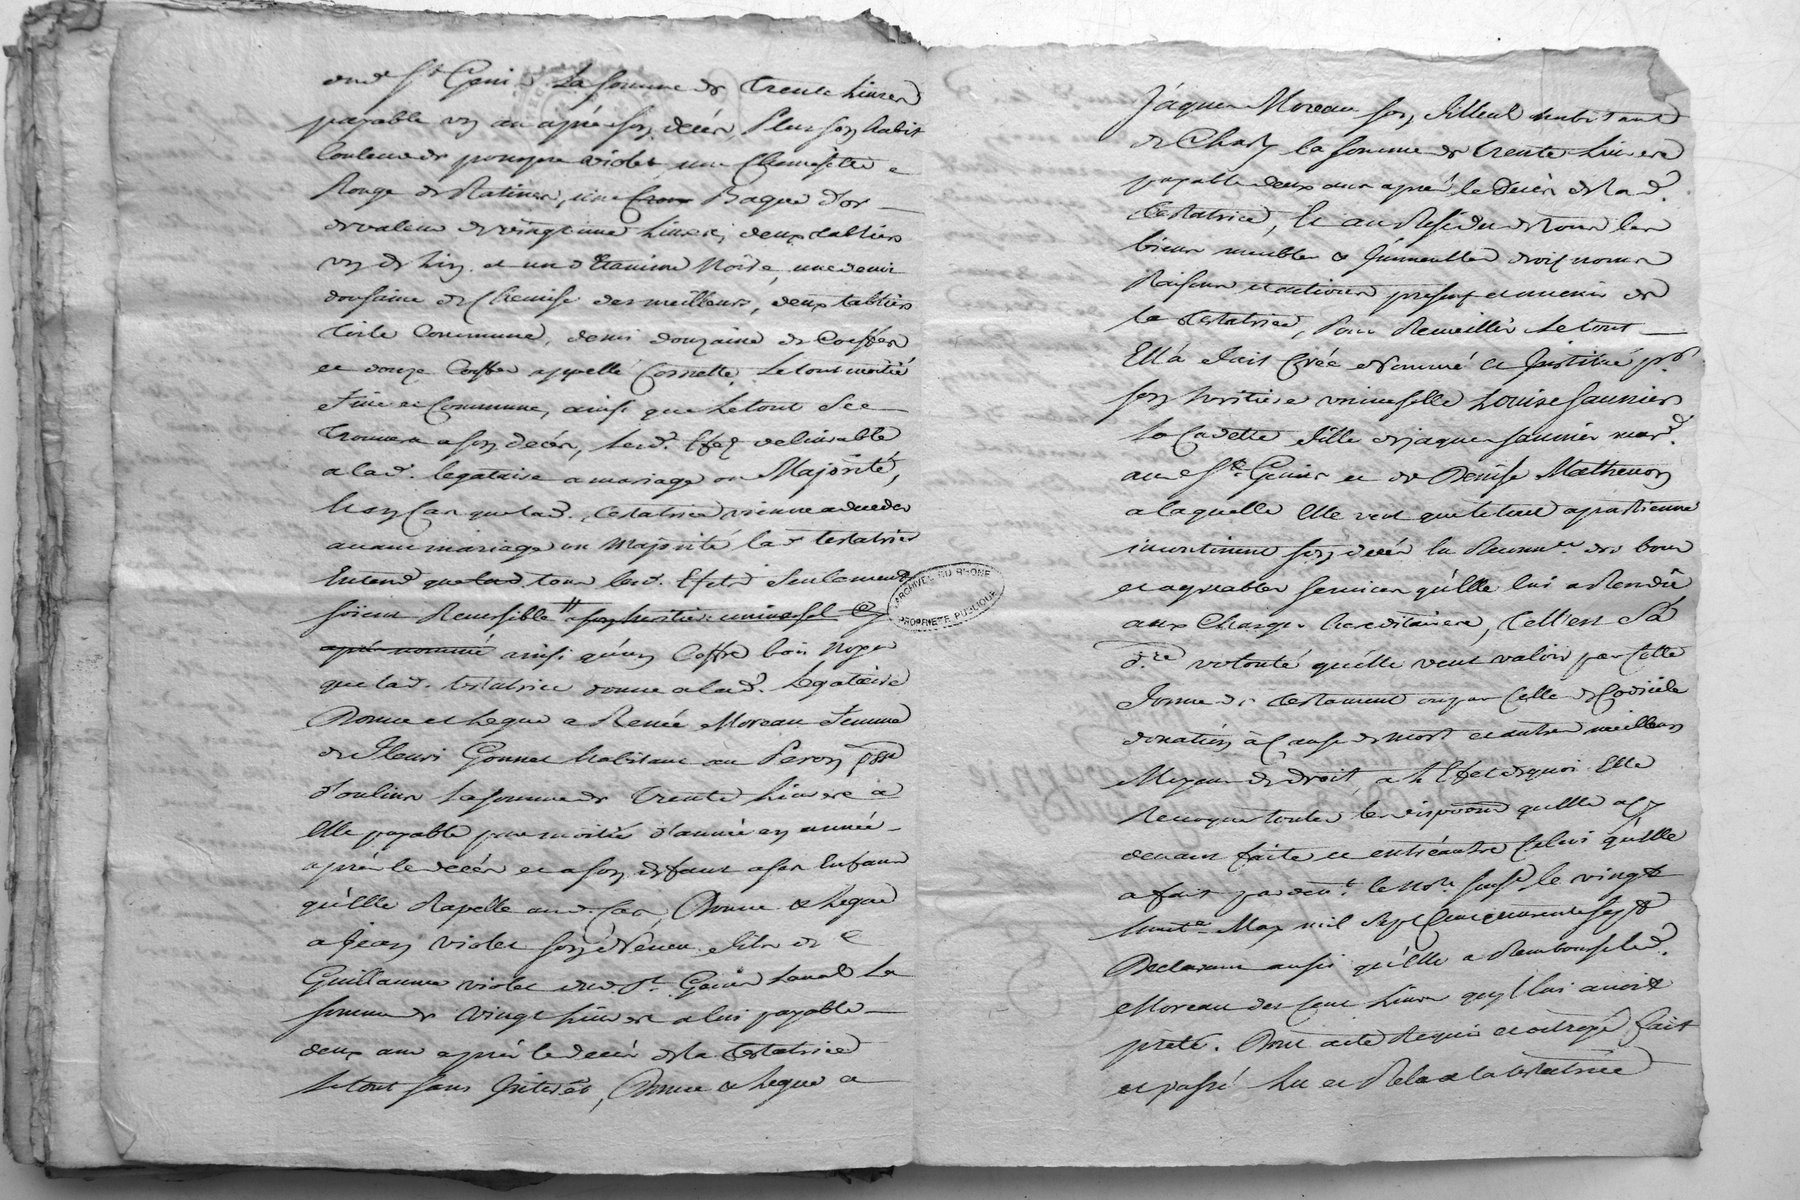 dud. St Genis La somme de trente Livres
payable un an apré son décés, Plus son habit
Couleur de pourpre violet, une Chemisette
Rouge de Ratines, une Croix Bague d'or
de valeur de vingt une Livres, deux tabliers
un de Lin et un d'Etamine Noire, une demi
dousaine de Chemise des meilleurs, deux tabliers
toile Commune, demi douzaine de Coiffes
et douze Coiffes appellé Cornette, Le tout moitié
fine et Commune, ainsi que Le tout Se
trouvera a son décés, Lesd. Efets delivrable
a lad. legataire a mariage ou Majorité,
Et en Cas que lad. testatrice vienne a deceder
avant mariage ou Majorité lad testatrice
Entend que tous lesd. Efets Seulement
soient Reversible a son heritiere universel Cy
aprés nommé ainsi qu'un Coffre bois Noyer
que lad. testatrice donne a lad. Legataire
Donne et Legue a Renée Moreau femme
de fleuri Gonnet habitant au Peron psse
d'oulins La somme de trente Livres a
Elle payable par moitié d'année en année
aprés le décés et a son defaut a ses Enfans
qu'Elle Rapelle aud. Cas, Donne & Legue
a Jean violet son Néveu fils de
Guillaume violet dud. St Genis Laval La
somme de vingt Livres a lui payable
deux ans aprés le décés de la testatrice
Le tout sans Interét, Donne & Legue a
Jâques Moreau son filleul habitant
de Charly la somme de trente Livres
payable deux ans aprés le décés de lad.
testatrice, Et au Résidu de tous les
biens meubles & Immeubles droits noms
Raisons et actions presents et avenir de
la testatrice, Pour Recueillir Le tout
Ell'a fait Créé et Nommé et Institué pr
son heritiere universelle Louise Saunier
La Cadette fille de jaques Saunier mard.
aud St. Genis et de Denise Mathevon
a laquelle Elle veut que le tout apartienne
incontinent son décés En Reconn.ce des bons
et agreables services qu'Elle lui a Rendu
aux Charges hereditaires, Cell'est Sa
d.re volonté qu'elle veut valoir par Cette
forme de testament ou par Celle de Codicile
donation à Cause de mort et autre meilleurs
Moyens de droit, a l'Efet de quoi Elle
Revoque toutes les disposons qu'Elle a Cy
devant faite et entréautre Celui qu'Elle
a fait pardevt. le Nore. Sousé. le vingt
huite May mil Sept Cent quarente Sept
Declarant aussi qu'Elle a Remboursé led.
Moreau des Cent Livres qu'Il lui avoit
prété. Dont acte Requis et octroyé fait
et passé Lu et Relu a la testatrice
ARCHIVES DU RHONE
PROPRIÉTÉ PUBLIQUE